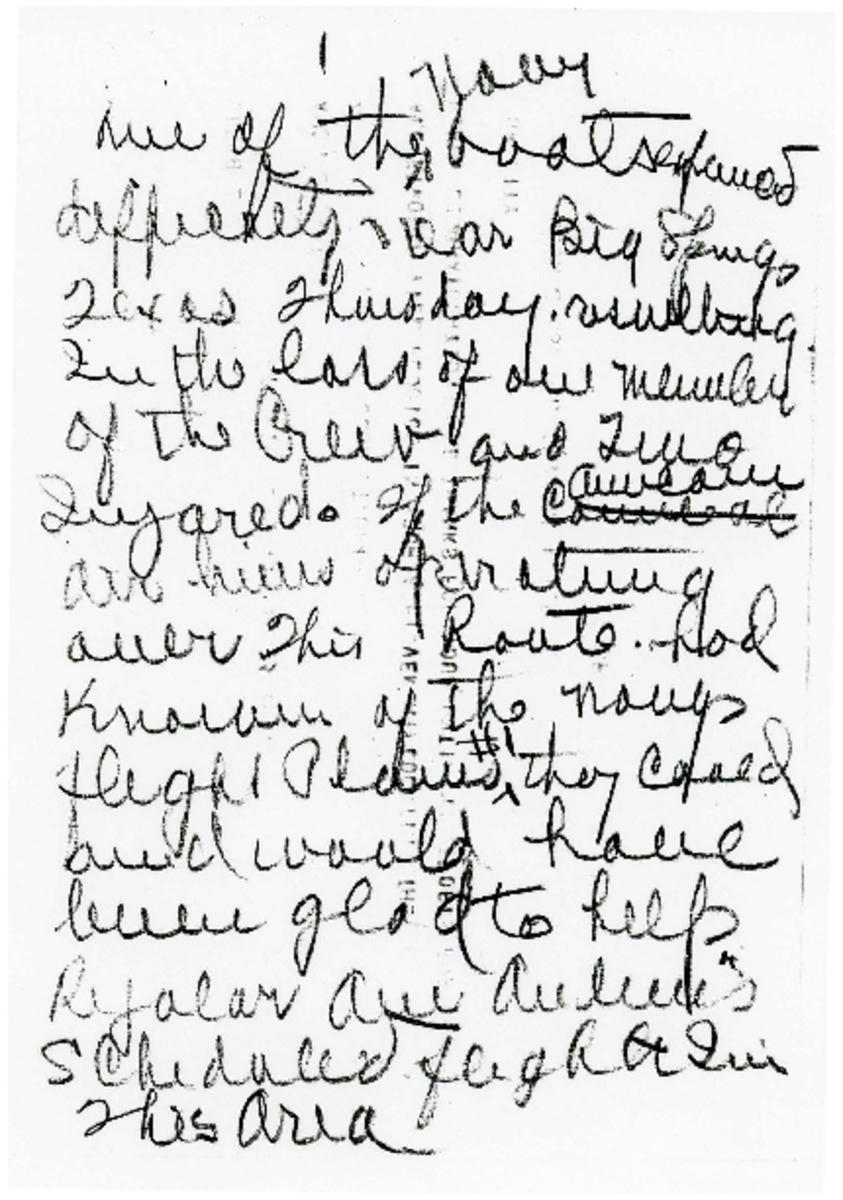 1
Navy
of the boats
near Big Springs
Texas Thursday. resulting
In the loss of one member
of the Crew and Two
american
Injored. If the
air lines operating
over This Route. had
Known of the navys
#1
flight Plans, they Could
and would have
been glad to help
Regular
Scheduled flights In
This Area